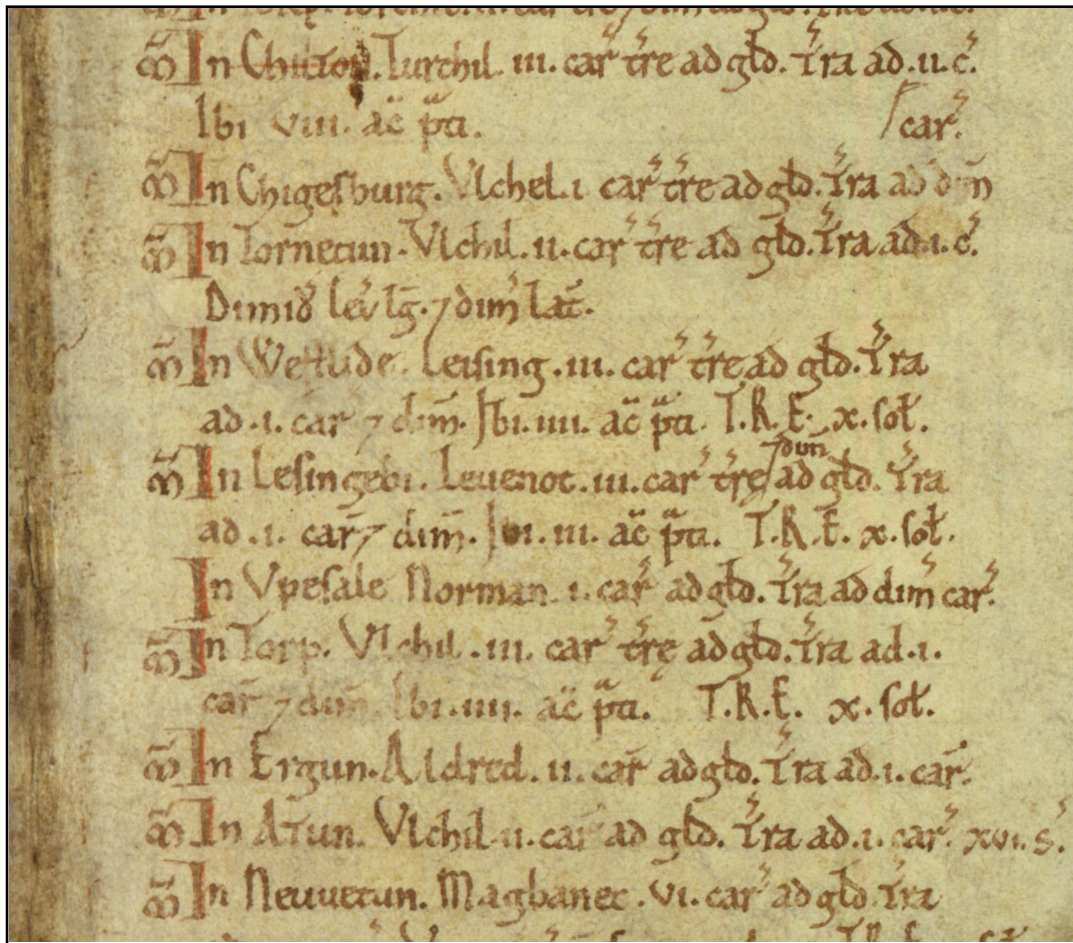 M̃ In Chilton. Turchil. iii. car̃ t̃re ad gld̃. T̃ra ad .ii. c̃.
Ibi viii. ac̃ p̃ti. car̃.
M̃ In Chigesburg. Vlchel. i. car̃ t̃re ad gld̃. T̃ra ad dim̃
M̃ In Tornetun. Vlchil. ii. car̃ t̃re ad gld̃. T̃ra ad .i. c̃.
Dimid̃ leṽ lg̃. ⁊ dim̃ lat̃.
M̃ In Westlide. Leising. iii. car̃ t̃re ad gld̃. T̃ra
ad .i. car̃ ⁊ dim̃. Ibi. iiii. ac̃ p̃ti. T.R.E. x. sol̃.
⁊ dim̃
M̃ In Lesingebi. Leuenot. iii. car̃ t̃re ad gld̃. T̃ra
ad .i. car̃ ⁊ dim̃. Ibi. iii. ac̃ p̃ti. T.R.E. x. sol̃.
In Vpesale Norman. i. car̃ ad gld̃. T̃ra ad dim̃ car̃.
M̃ In Torp. Vlchil. iii. car̃ t̃re ad gld̃. T̃ra ad .i.
car̃ ⁊ dim̃. Ibi. iiii. ac̃ p̃ti. T.R.E. x. sol̃.
M̃ In Ergun. Aldred. ii. car̃ ad gld̃. T̃ra ad .i. car̃.
M̃ In Atun. Vlchil. ii. car̃ ad gld̃. T̃ra ad .i. car̃. xvi. s̃.
M̃ In Neuuetun. Magbanec. vi. car̃ ad gld̃. T̃ra